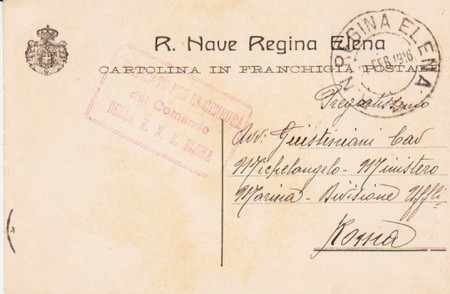 R. Nave Regina Elena
CARTOLINA IN FRANCHIGIA POSTALE
R. N. REGINA ELENA
FEB. 1916
PER LA CENSURA
del Comando
DELLA R. N. R. ELENA
Pregiatissimo
Avv. Giustiniani Cav
Michelangelo - Ministero
Marina - Divisione Uffli
Roma